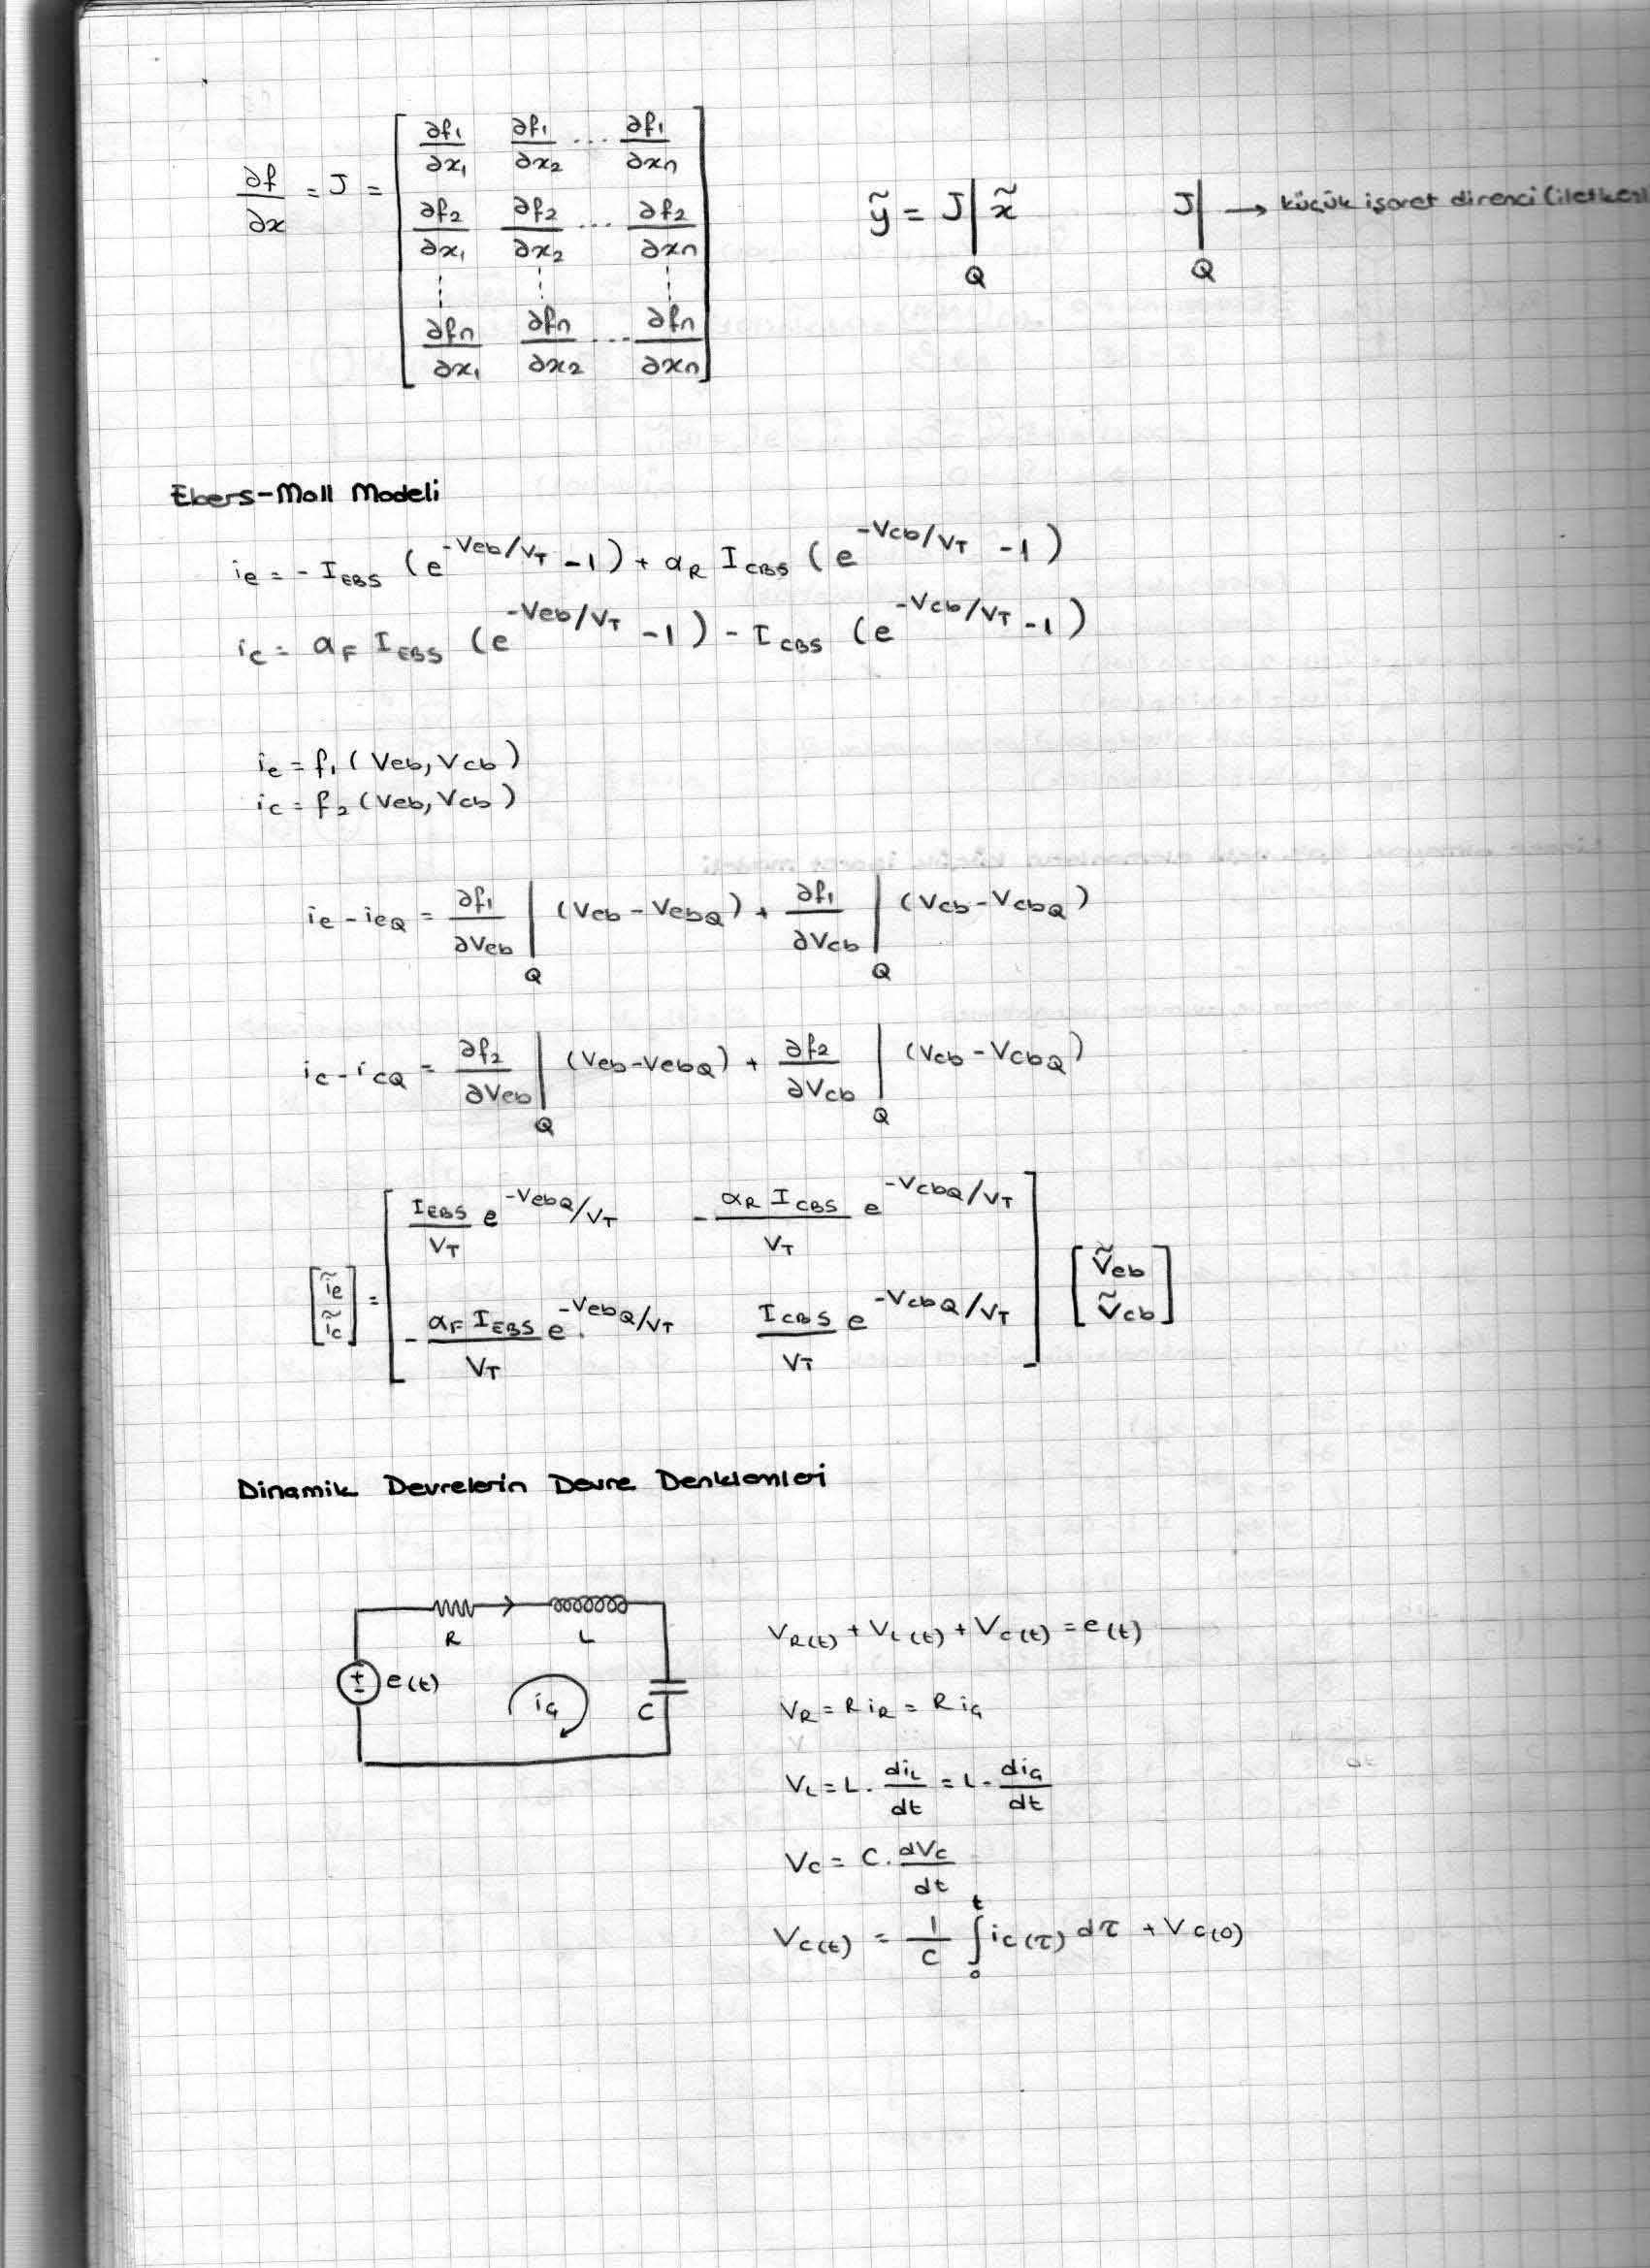 ∂f/∂x = J = [ ∂f₁/∂x₁ ∂f₁/∂x₂ ... ∂f₁/∂xn
∂f₂/∂x₁ ∂f₂/∂x₂ ... ∂f₂/∂xn
⋮ ⋮ ⋮
∂fn/∂x₁ ∂fn/∂x₂ ... ∂fn/∂xn ]
ỹ = J|Q x̃
J|Q → küçük işaret direnci (iletken)
Ebers-Moll Modeli
ie = - IEBS (e^(-Veb/VT) - 1) + αR ICBS (e^(-Vcb/VT) - 1)
ic = αF IEBS (e^(-Veb/VT) - 1) - ICBS (e^(-Vcb/VT) - 1)
ie = f₁ (Veb, Vcb)
ic = f₂ (Veb, Vcb)
ie - ieQ = ∂f₁/∂Veb |Q (Veb - VebQ) + ∂f₁/∂Vcb |Q (Vcb - VcbQ)
ic - icQ = ∂f₂/∂Veb |Q (Veb - VebQ) + ∂f₂/∂Vcb |Q (Vcb - VcbQ)
[ĩe ĩc] = [ IEBS/VT e^(-VebQ/VT) - αR ICBS/VT e^(-VcbQ/VT)
- αF IEBS/VT e^(-VebQ/VT) ICBS/VT e^(-VcbQ/VT) ] [Ṽeb Ṽcb]
Dinamik Devrelerin Devre Denklemleri
R L
+ - e(t) iG C
VR(t) + VL(t) + VC(t) = e(t)
VR = R iR = R iG
VL = L . diL/dt = L . diG/dt
VC = C . dVC/dt
VC(t) = 1/C ∫₀ᵗ iC(τ) dτ + VC(0)